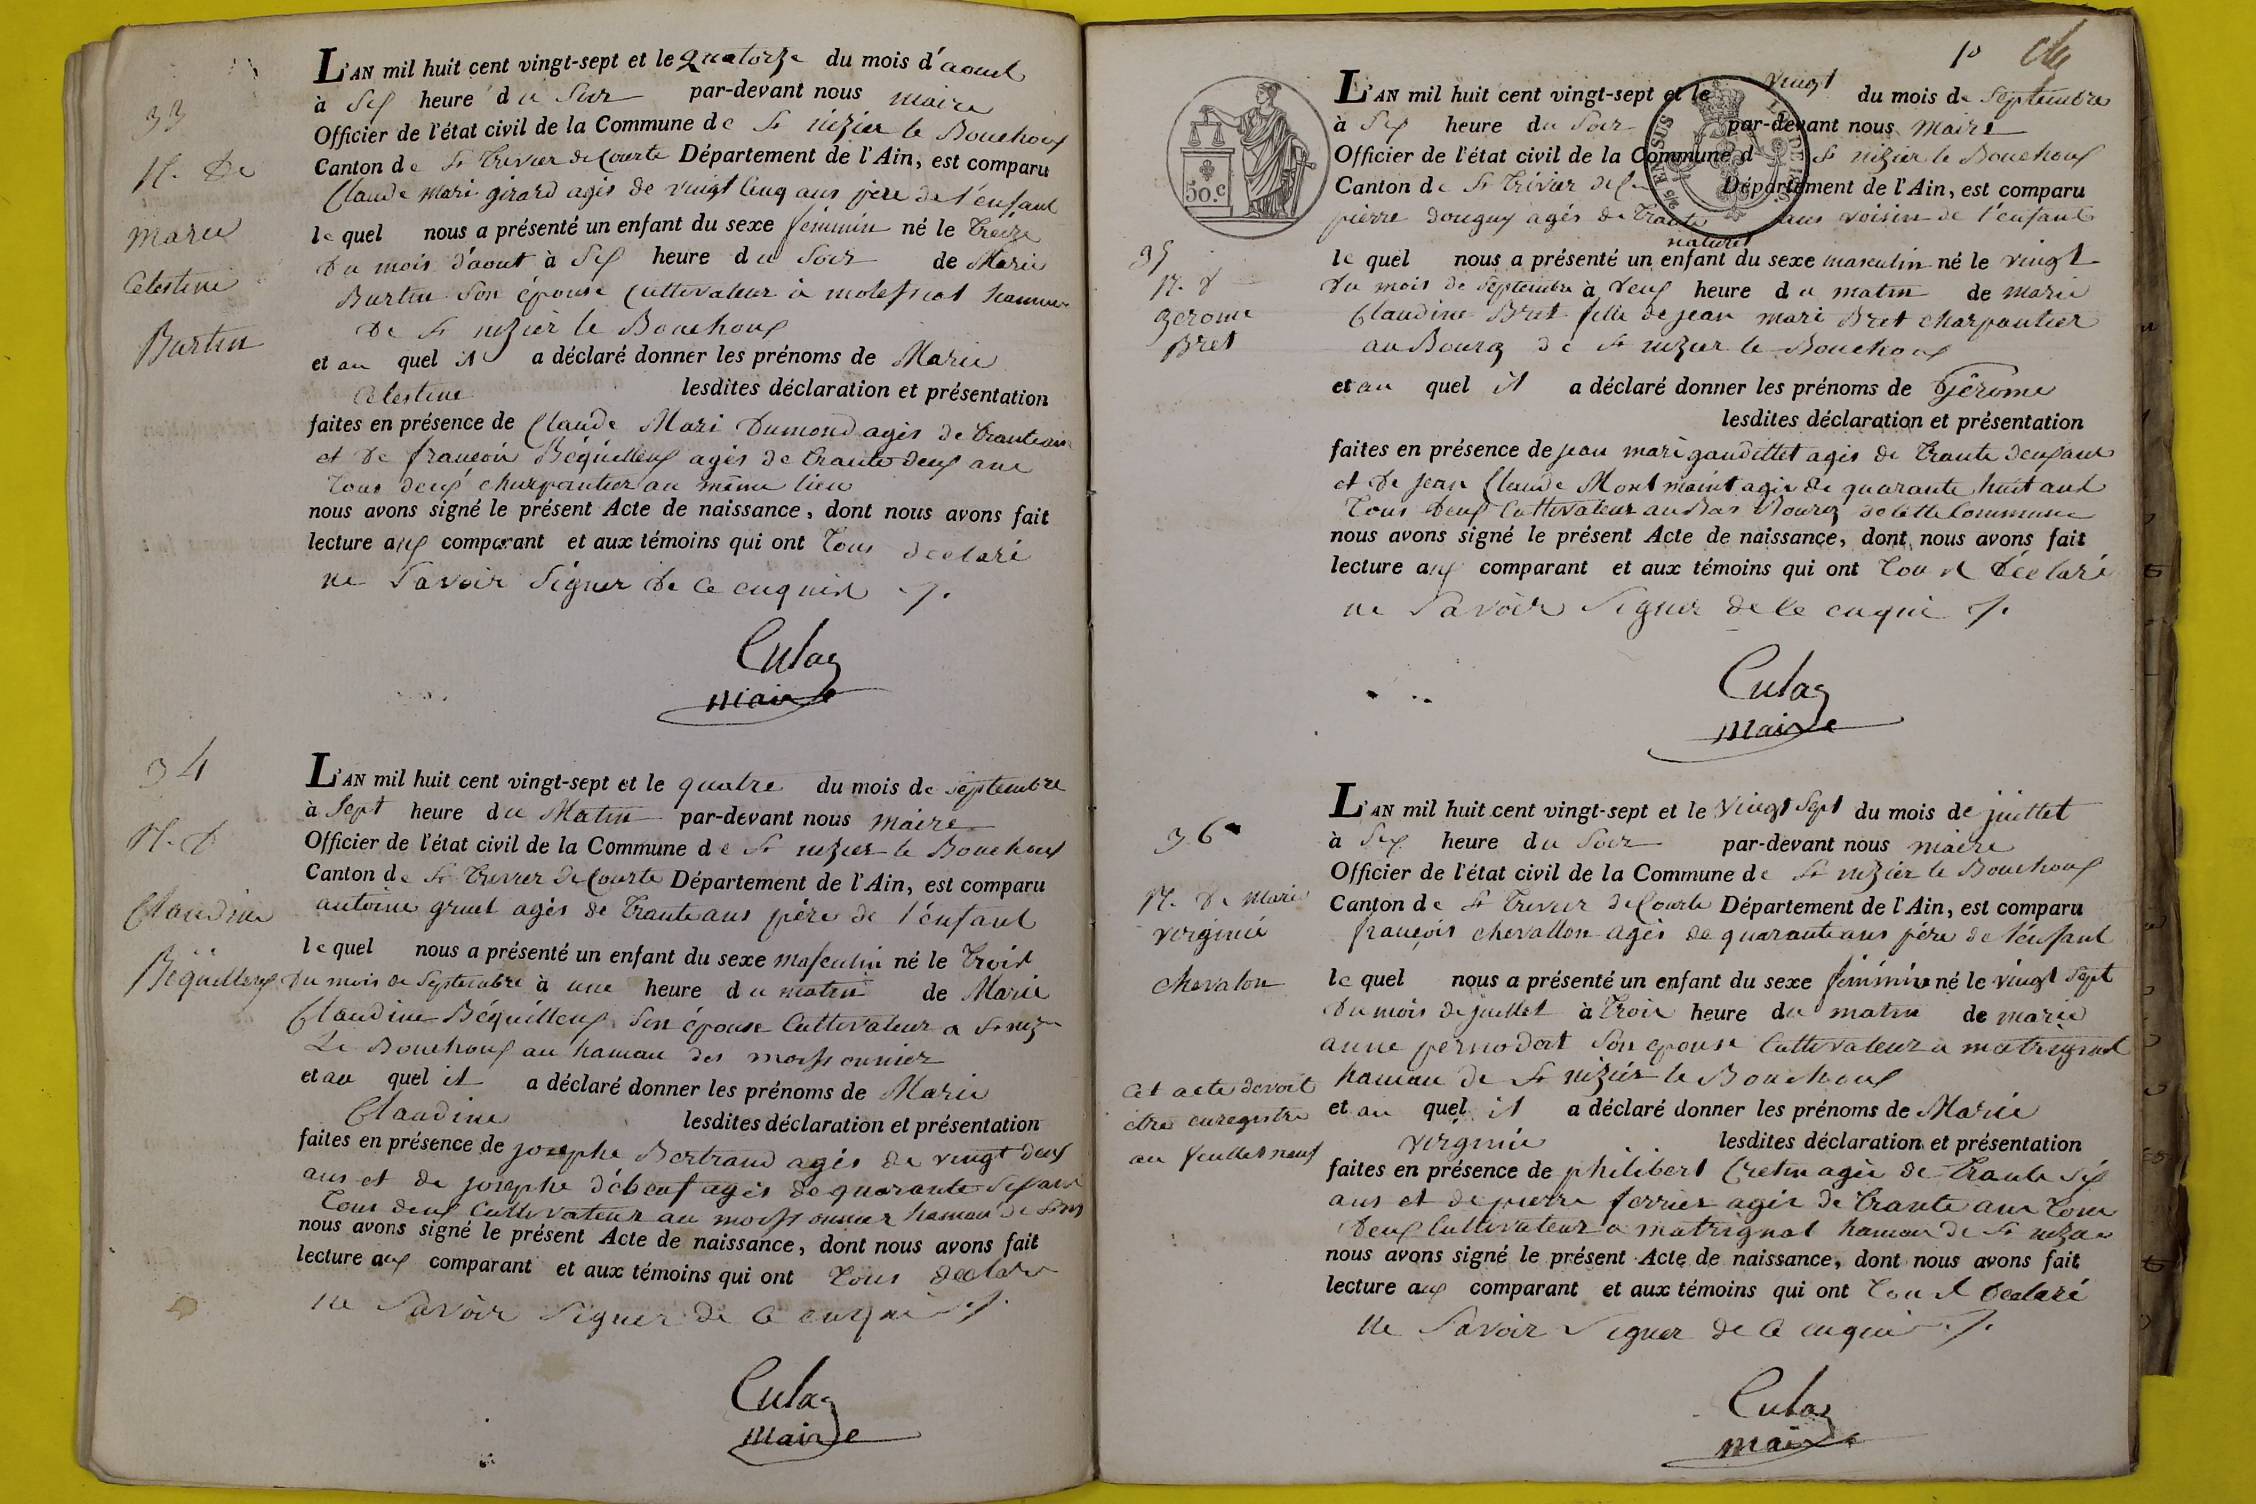 33
N. De
Marie
Celestine
Burtin
L'AN mil huit cent vingt-sept et le quatorze du mois d'aout
à Six heure du Soir par-devant nous maire
Officier de l'état civil de la Commune de St nizier le Bouchoux
Canton de St Trivier de Courte Département de l'Ain, est comparu
Claude mari girard agés de vingt cinq ans père de l'enfant
lequel nous a présenté un enfant du sexe féminin né le Treize
Du mois d'aout à Six heure du Soir de Marie
Burtin Son épouse Cultivateur à hameau
De St nizier le Bouchoux
et au quel il a déclaré donner les prénoms de Marie
Celestine lesdites déclaration et présentation
faites en présence de Claude Mari Dumond agés de trante ans
et De francois Béquilleux agés de trante deux ans
Tous deux charpantier au même lieu
nous avons signé le présent Acte de naissance, dont nous avons fait
lecture aux comparant et aux témoins qui ont Tous declaré
ne Savoir Signer De ce enquis
Culaz
maire
34
N. D
Claudine
Béquilleux
L'AN mil huit cent vingt-sept et le quatre du mois de septembre
à Sept heure du Matin par-devant nous maire
Officier de l'état civil de la Commune de St nizier le Bouchoux
Canton de St Trivier de Courte Département de l'Ain, est comparu
antoine gruel agés de trante ans père de l'enfant
lequel nous a présenté un enfant du sexe masculin né le Trois
Du mois de Septembre à une heure du matin de Marie
Claudine Béquilleux Son épouse Cultivateur a St niz
Le Bouchoux au hamau des moissonnier
et au quel il a déclaré donner les prénoms de Marie
Claudine lesdites déclaration et présentation
faites en présence de josephe Bertrand agés de vingt deux
ans et de josephe débeuf agés de quarante Six ans
Tous deux Cultivateur au moissonnier hamau de St niz
nous avons signé le présent Acte de naissance, dont nous avons fait
lecture aux comparant et aux témoins qui ont Tous declaré
ne Savoir Signer de ce enqui
Culaz
maire
10
50.C
35
N. D
gerome
Bret
L'AN mil huit cent vingt-sept et le vingt du mois de Septembre
à Six heure du Soir par-devant nous maire
Officier de l'état civil de la Commune d St nizier le Bouchoux
Canton de St Trivier de C Département de l'Ain, est comparu
pierre douguy agés de trante ans voisin de l'enfant
naturel
lequel nous a présenté un enfant du sexe masculin né le vingt
Du mois de septembre à deux heure du matin de marie
Claudine Bret fille de jean mari Bret charpantier
au Bourg de St nizier le Bouchoux
et au quel il a déclaré donner les prénoms de Gérome
lesdites déclaration et présentation
faites en présence de jean mari gaudillet agés de trante deux ans
et de jean Claude Montmaint agés de quarante huit ans
Tous deux Cultivateur au Bas Bourg de cette Commune
nous avons signé le présent Acte de naissance, dont nous avons fait
lecture aux comparant et aux témoins qui ont Tous Déclaré
ne Savoir Signer de ce enqui
Culaz
maire
36
N. De Marie
virginie
chevalon
Cet acte devoit
etre enregistre
au feuillet neuf
L'AN mil huit cent vingt-sept et le vingt Sept du mois de juillet
à Six heure du Soir par-devant nous maire
Officier de l'état civil de la Commune de St nizier le Bouchoux
Canton de St Trivier de Courte Département de l'Ain, est comparu
françois chevallon agés de quarante ans père de l'enfant
lequel nous a présenté un enfant du sexe féminin né le vingt Sept
Du mois de juillet à Trois heure du matin de marie
anne pernodat Son epouse Cultivateur a matrignat
hamau de St nizier le Bouchoux
et au quel il a déclaré donner les prénoms de Marie
virginie lesdites déclaration et présentation
faites en présence de philibert Cretin agés de trante Six
ans et de pierre ferrier agés de trante ans Tous
Deux Cultivateur a matrignat hamau de St nizier
nous avons signé le présent Acte de naissance, dont nous avons fait
lecture aux comparant et aux témoins qui ont Tous Declaré
ne Savoir Signer de ce enqui
Culaz
maire